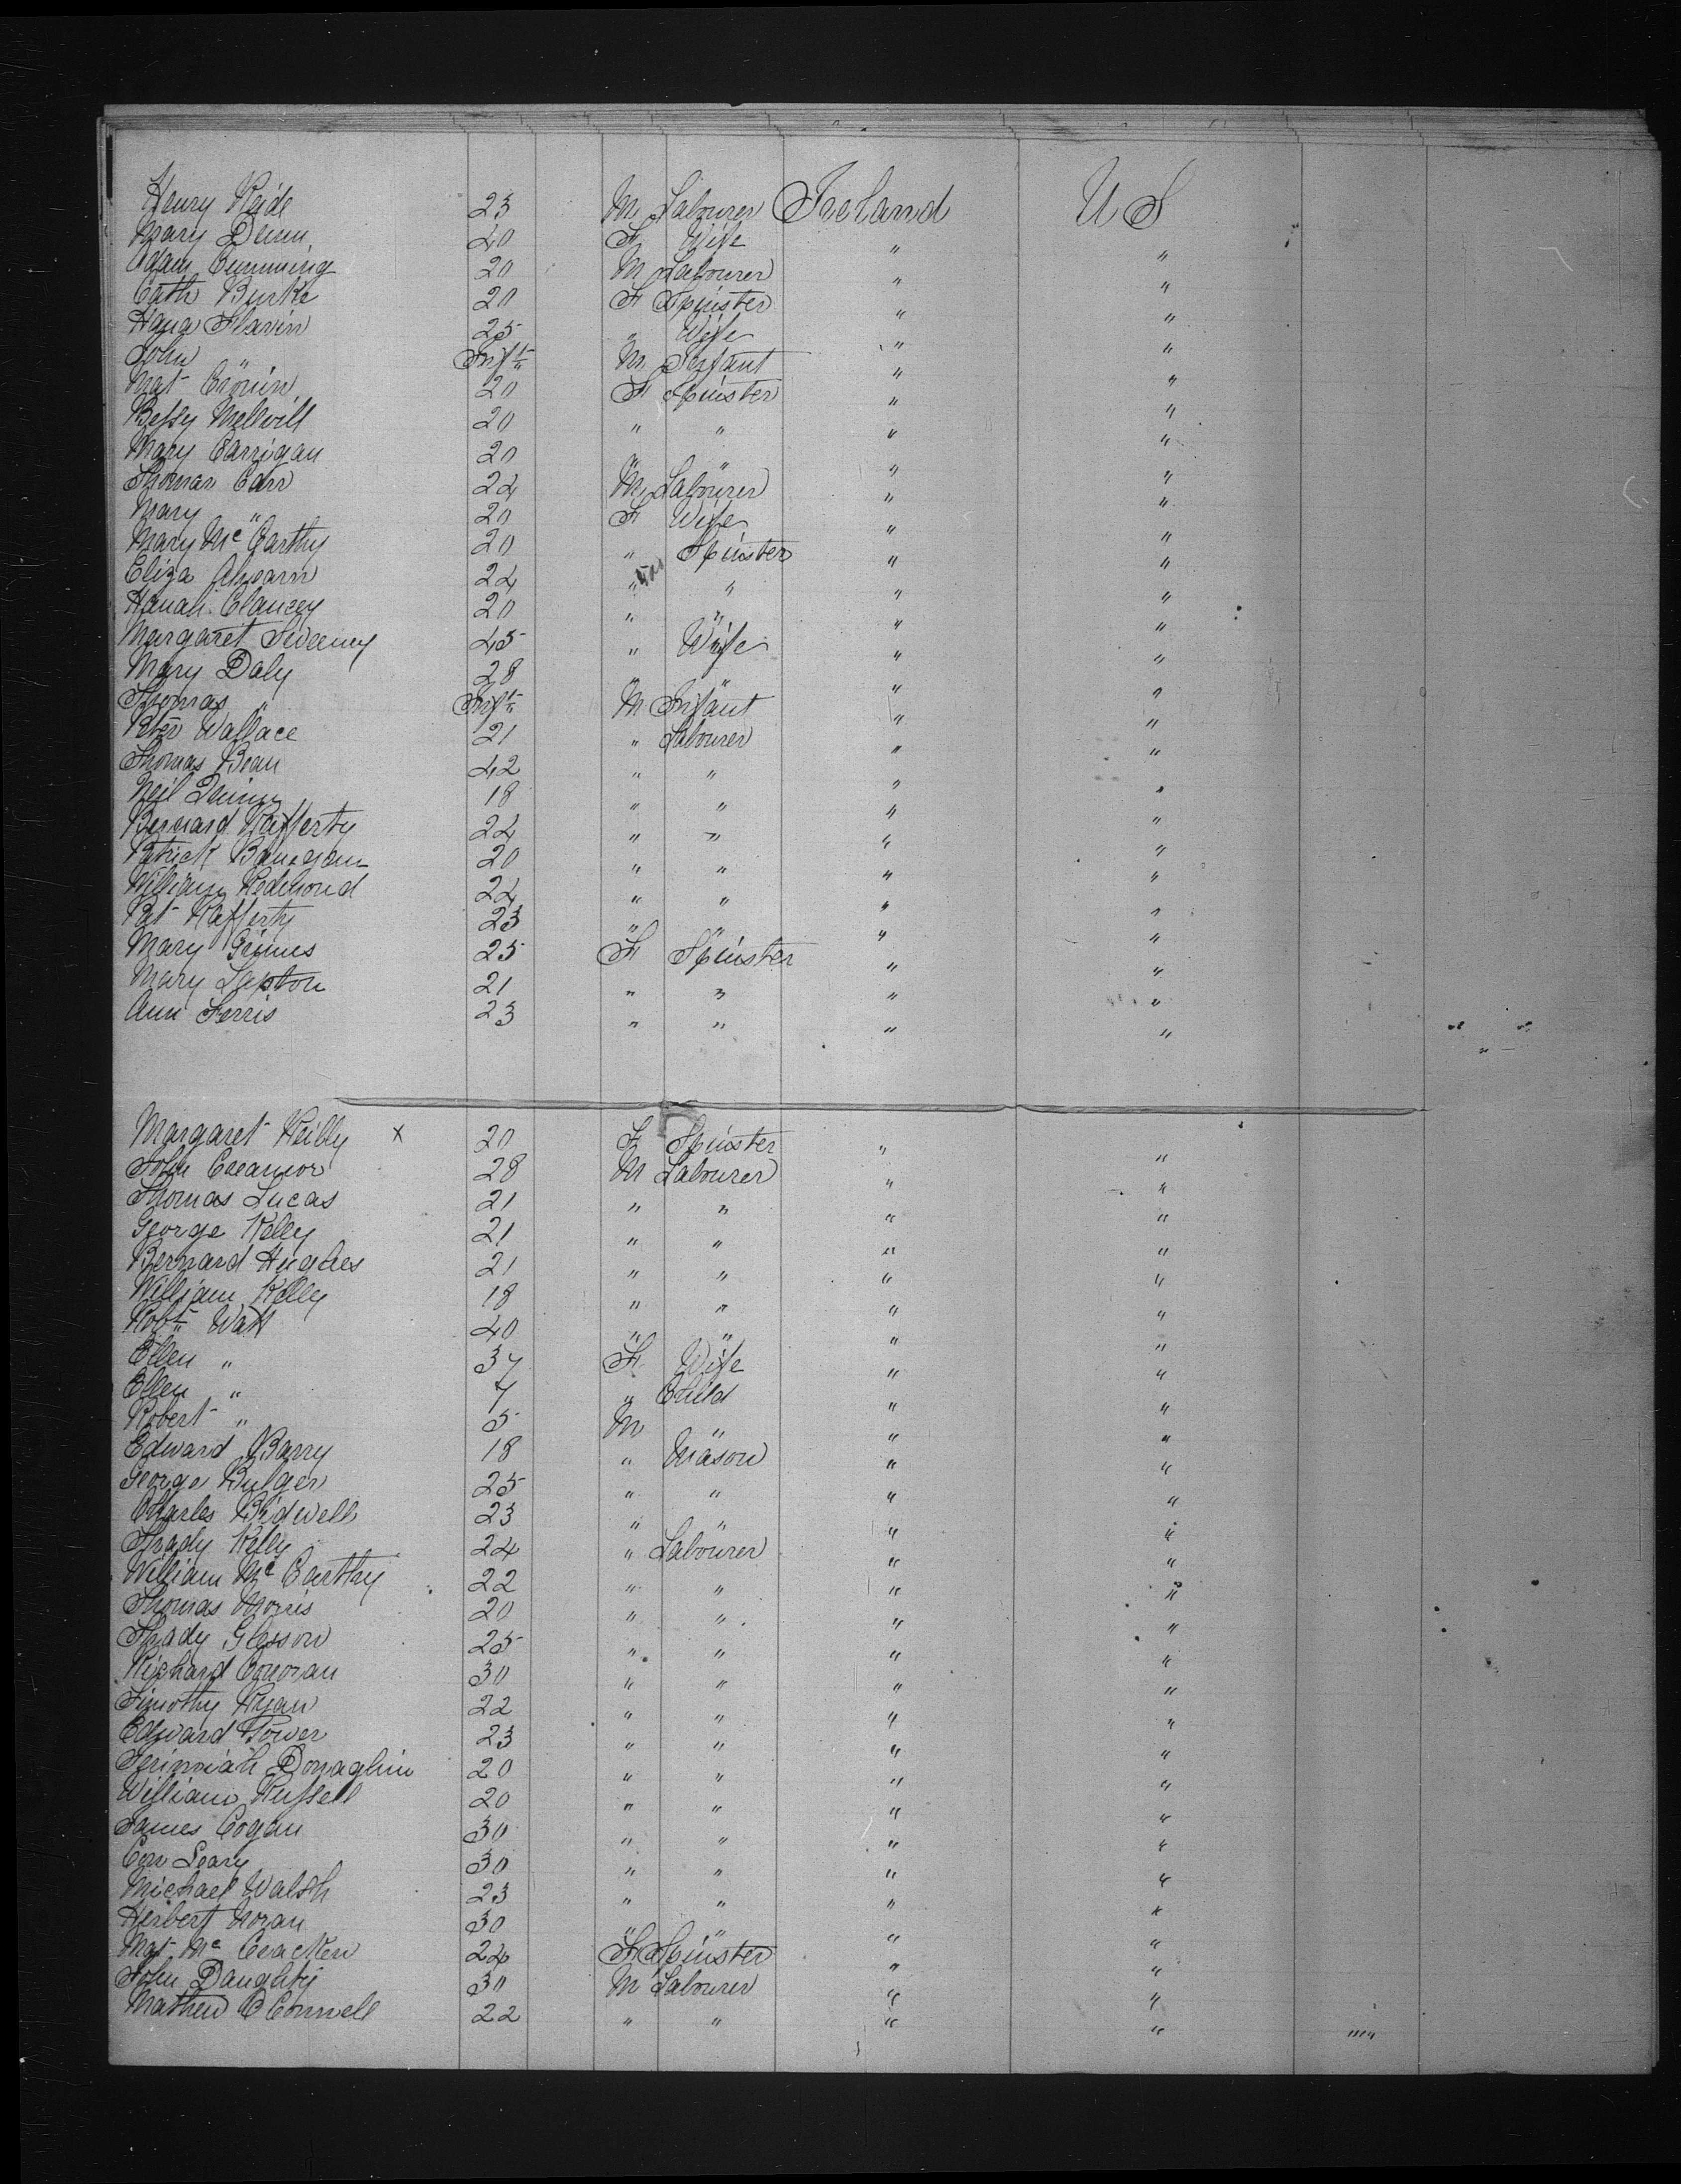 Henry Reide 23 M Labourer Ireland U S
Mary Dunn 40 F Wife " "
Adam Cumming 20 M Labourer " "
Cath Burke 20 F Spinster " "
Hana Flavin 25 " Wife " "
John " Inft M Infant " "
Mgt Cronin 20 F Spinster " "
Bessy Mellvill 20 " " " "
Mary Carrigan 20 " " " "
Thomas Carr 22 M Labourer " "
Mary " 20 F Wife " "
Mary Mc Carthy 20 " Spinster " "
Eliza Ahearn 22 " " " "
Hanah Clancey 20 " " " "
Margaret Sweeney 45 " Wife " "
Mary Daly 28 " " " "
Thomas " Inft M Infant " "
Peter Wallace 21 " Labourer " "
Thomas Bean 42 " " " "
Neil 18 " " " "
Bernard Rafferty 22 " " " "
Patrick 20 " " " "
William Redmond 22 " " " "
Pat Rafferty 23 " " " "
Mary Grimes 25 F Spinster " "
Mary Lapton 21 " " " "
Ann Ferris 23 " " " "
Margaret Reilly x 20 F Spinster " "
John 28 M Labourer " "
Thomas Lucas 21 " " " "
George Kelly 21 " " " "
Bernard Hughes 21 " " " "
William Kelly 18 " " " "
Robt Watt 40 " " " "
Ellen " 37 F Wife " "
Ellen " 7 " Child " "
Robert " 5 M " " "
Edward Barry 18 " Mason " "
George Bulger 25 " " " "
Charles Bidwell 23 " " " "
Thady Kelly 24 " Labourer " "
William Mc Carthy 22 " " " "
Thomas Morris 20 " " " "
Thady Glesson 25 " " " "
Richard Conoran 30 " " " "
Timothy Ryan 22 " " " "
Edward Power 23 " " " "
Jerimiah Donaghue 20 " " " "
William Russell 20 " " " "
James Cogan 30 " " " "
Con Leary 30 " " " "
Michael Walsh 23 " " " "
Herbert Moran 30 " " " "
Mgt Mc Cracken 24 F Spinster " "
John Daughty 30 M Labourer " "
Mathew O Connell 22 " " " " ""